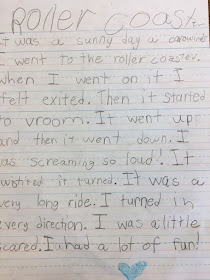 Roller coaster
It was a sunny day a carowinds
I went to the roller coaster.
when I went on it I
felt exited. Then it started
to vroom. It went up
and then it went down. I
was screaming so loud. It
twisted it turned. It was a
very long ride. I turned in
every direction. I was a little
scared. I had a lot of fun!